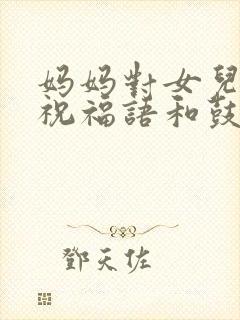 妈妈對女兒
祝福語和鼓
鄧天佐